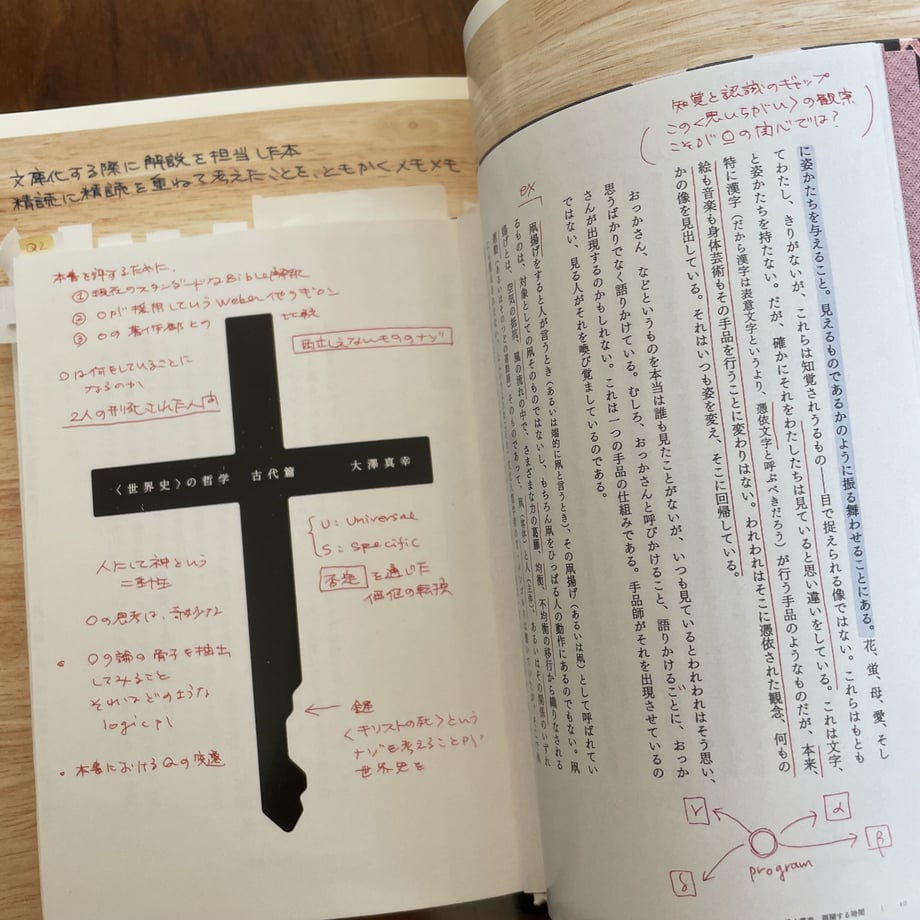 文庫化する際に解説を担当した本
精読に精読を重ねて考えたことを、ともかくメモメモ
本書を評するために、
① 現在のスタンダードなBible解釈
② Oが採用しているWeber他のギロン
③ Oの著作群との
比較
回収しえないもののナゾ
Oは何をしていることに
なるのか
2人の刑死された人間
〈世界史〉の哲学 古代篇 大澤真幸
U = Universal
S = Specific
否定を通じた
価値の転換
人にして神という
二重性
Oの思考は、奇妙な
Oの論の骨子を抽出
してみること
それはどのような
logicか
・本書におけるQの変遷
← 鍵
〈キリストの死〉という
ナゾを考えることが
世界史を
知覚と認識のギャップ
この〈思いちがい〉の観察
こそがOの関心では?
に姿かたちを与えること。見えるものであるかのように振る舞わせることにある。花、蛍、母、愛、そし
てわたし、きりがないが、これらは知覚されうるもの――目で捉えられる像ではない。これらはもとも
と姿かたちを持たない。だが、確かにそれをわたしたちは見ていると思い違いをしている。これは文字、
特に漢字(だから漢字は表意文字というより、憑依文字と呼ぶべきだろう)が行う手品のようなものだが、本来、
絵も音楽も身体芸術もその手品を行うことに変わりはない。われわれはそこに憑依された観念、何もの
かの像を見出している。それはいつも姿を変え、そこに回帰している。
おっかさん、などというものを本当は誰も見たことがないが、いつも見ているとわれわれはそう思い、
思うばかりでなく語りかけている。むしろ、おっかさんと呼びかけること、語りかけることに、おっか
さんが出現するのかもしれない。これは一つの手品の仕組みである。手品師がそれを出現させているの
ではない、見る人がそれを喚び覚ましているのである。
ex
凧揚げをすると人が言うとき(あるいは端的に凧と言うとき)、その凧揚げ(あるいは凧)として呼ばれてい
るものは、対象としての凧そのものではないし、もちろん凧をひっぱる人の動作にあるのでもない。凧
揚げとは、空気の抵抗、風の流れの中で、さまざまな力の葛藤、均衡、不均衡の移行から織りなされる
γ
α
β
δ
program